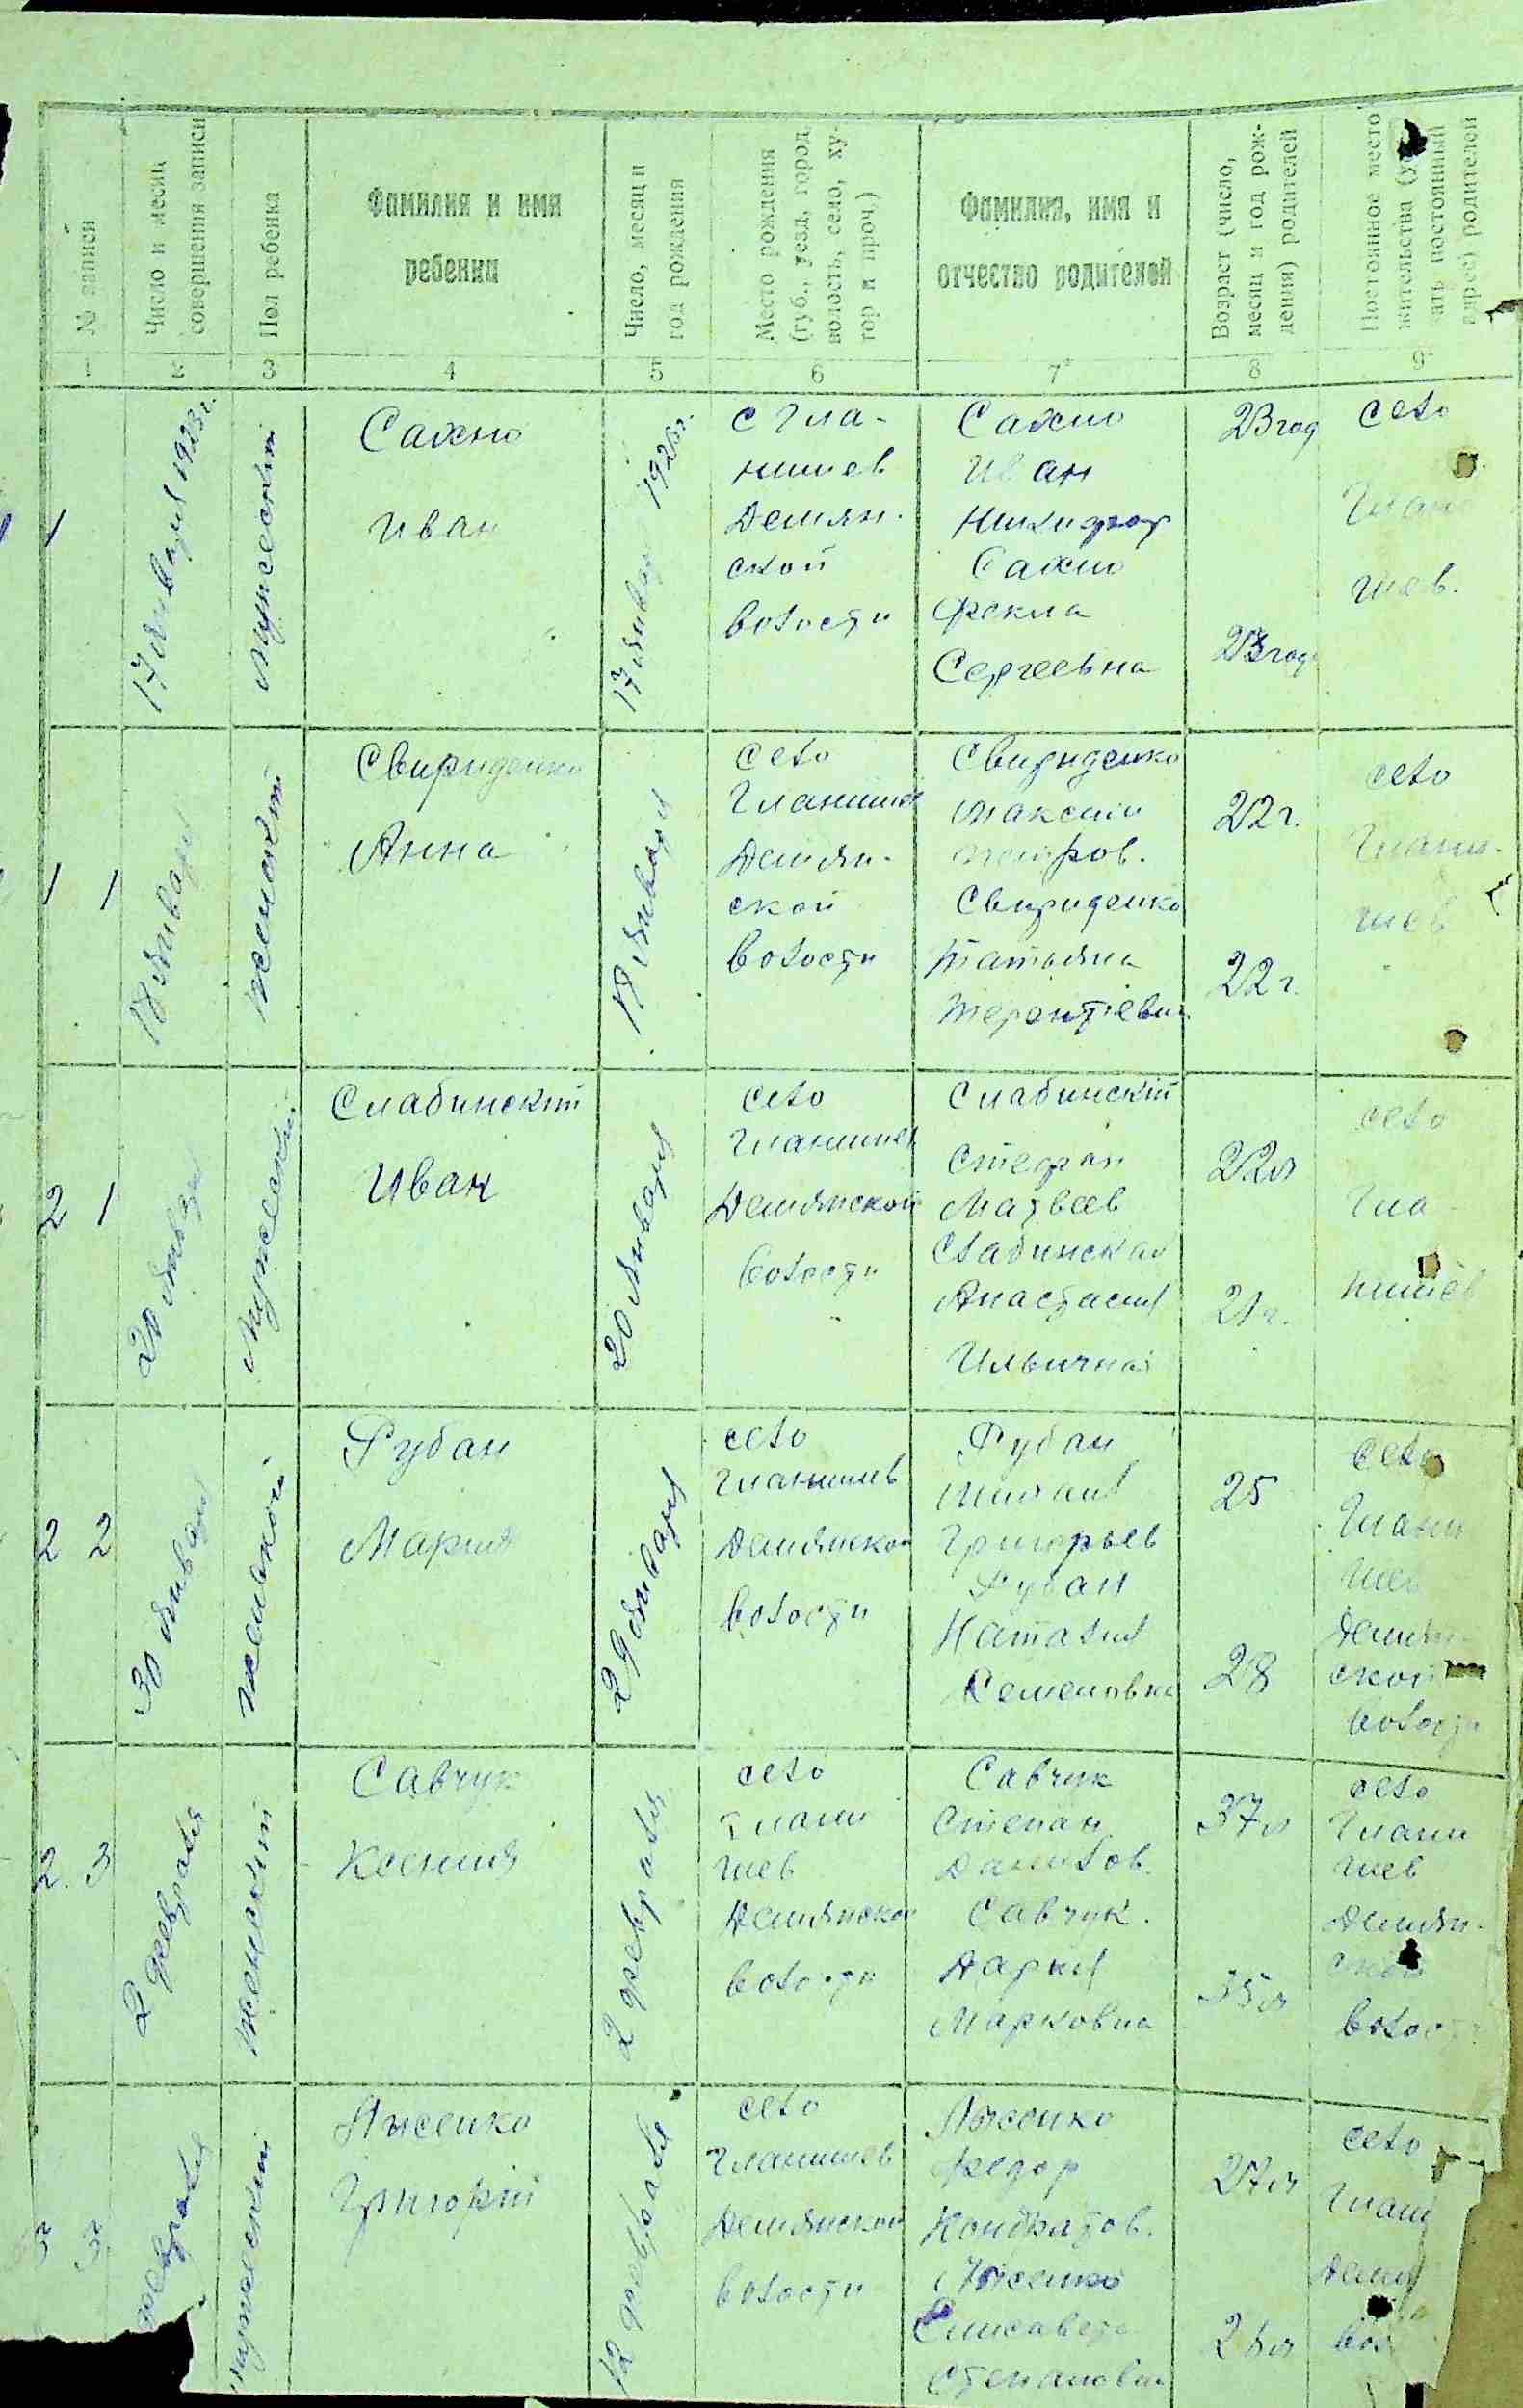 № записи
Число и месяц
совершения записи
Пол ребенка
Фамилия и имя
ребенка
Число, месяц и
год рождения
Место рождения
(губ., уезд, город,
волость, село, ху-
тор и проч.)
Фамилия, имя и
отчество родителей
Возраст (число,
месяц и год рож-
дения) родителей
Постоянное место
жительства
постоянный
родителей
1
2
3
4
5
6
7
8
9
1
17 января 1923 г.
Мужеский
Сахно
Иван
17 января
с Гла-
нишев
Демян-
ской
волости
Сахно
Иван
Никифор
Сахно
Фекла
Сергеевна
23 год
23 год
село
Глан
шев.
1 1
18 января
женский
Свириденко
Анна
18 января
село
Гланишев
Демян-
ской
волости
Свириденко
Максим
Петров.
Свириденко
Татьяна
22 г.
22 г.
село
Глани-
шев
2 1
20 января
Мужеский
Слабинский
Иван
20 января
село
Гланишев
Демянской
волости
Слабинский
Стефан
Матвеев
Слабинская
Анастасия
Ильична
22 л
21 г.
село
Гла
нишев
2 2
30 января
женской
Рубан
Мария
29 января
село
Гланишев
Демянской
волости
Рубан
Григорьев
Рубан
Наталия
Семеновна
25
28
село
Глани
шев
Демян-
ской
волости
2. 3
2 февраля
женский
Савчук
Ксения
2 февраля
село
Глани
шев
Демянской
волости
Савчук
Степан
Данилов.
Савчук.
Дария
Марковна
37 л
35 л
село
Глани
шев
Демян-
ской
волости
3 3
февраля
мужеский
Лысенко
Григорий
12 февраля
село
Гланишев
Демянской
волости
Лысенко
Федор
Кондратов.
Лысенко
Елисавета
Степановна
27 л
село
Глани
Демя
вол